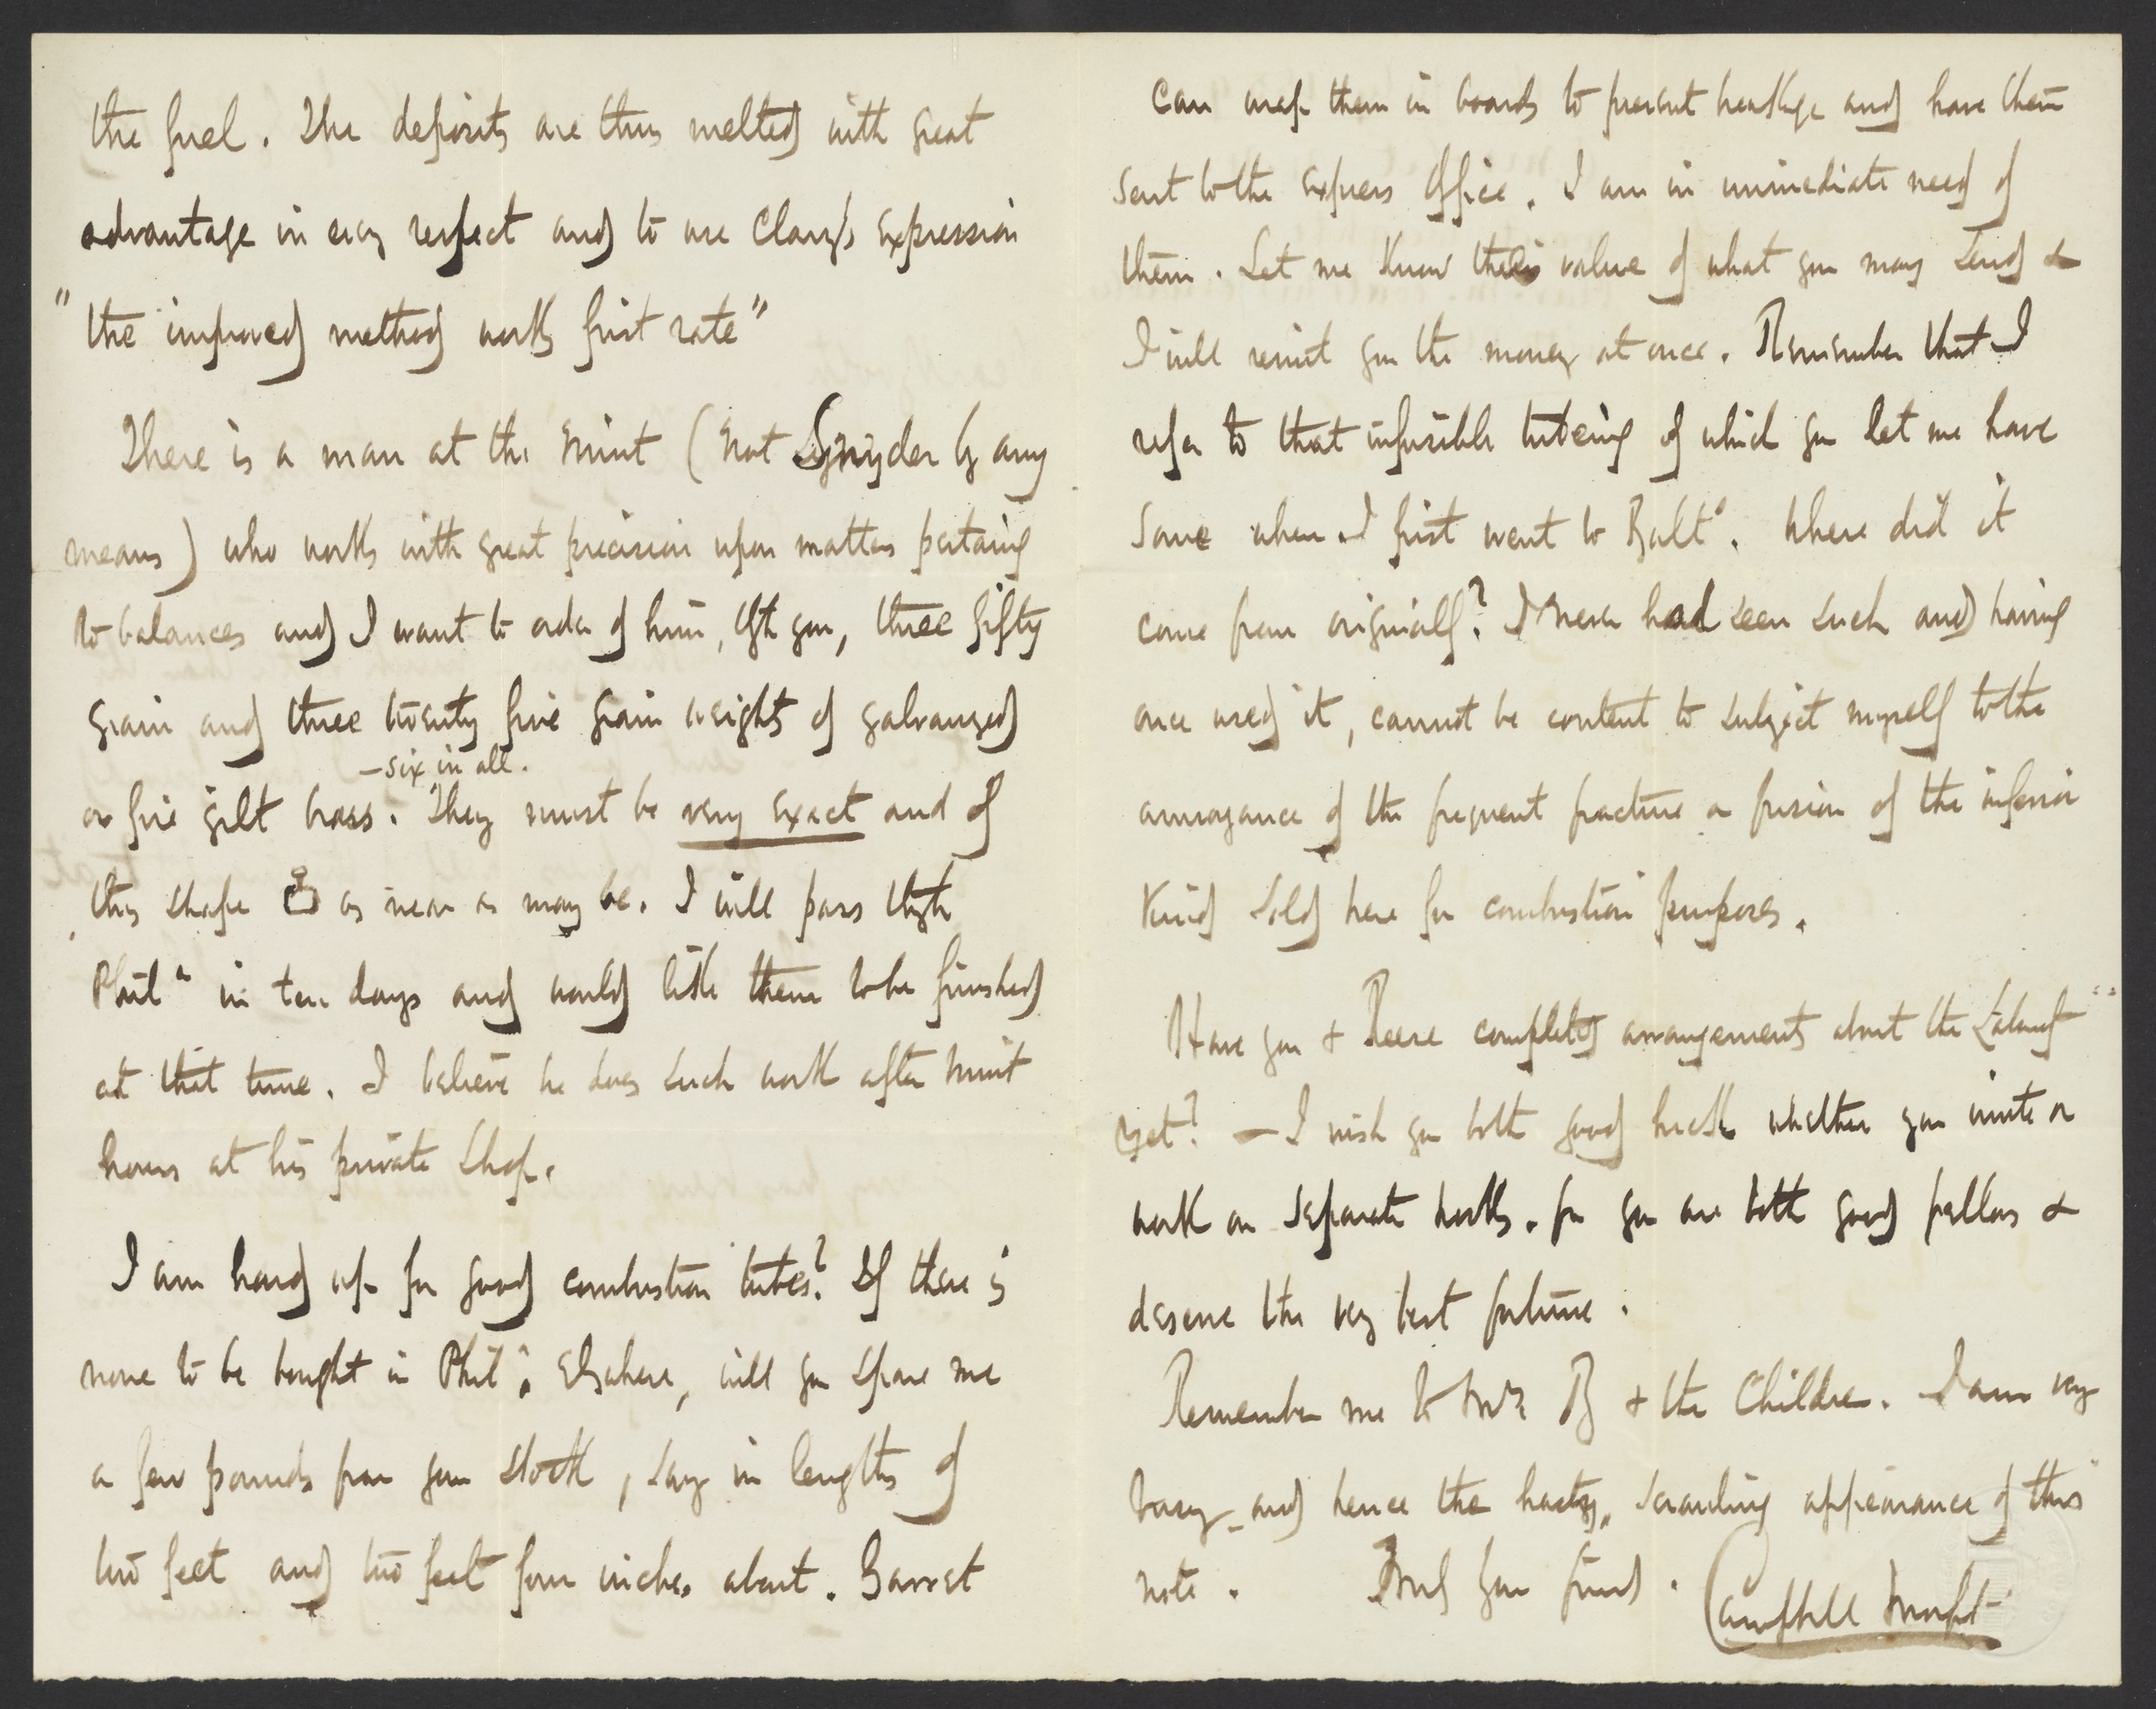 the fuel. The deposits are thus melted with great
advantage in every respect and to use Clary's expression
"the improved method works first rate"
There is a man at the Mint (not Snyder by any
means) who works with great precision upon matters pertaing
to balances and I want to order of him, thro you, three fifty
grain and three twenty five grain weights of galvanized
– six in all.
or fire gilt brass. They must be very exact and of
this shape as near as may be. I will pass through
Phila in ten days and would like them to be finished
at that time. I believe he does such work after mint
hours at his private shop.
I am hard up for good combustion tubes? If there is
none to be bought in Phila. Elsewhere, will you spare me
a few pounds from your stock, say in lengths of
two feet and two feet four inches about. Garret
can wrap them in boards to prevent breakage and have them
sent to the express office. I am in immediate need of
them. Let me know the value of what you may send &
I will remit you the money at once. Remember that I
refer to that infusible tubeing of which you let me have
some when I first went to Balto. Where did it
come from originally? I never had seen such and having
once used it, cannot be content to subject myself to the
annoyance of the frequent fracture or fusion of the inferior
kind sold here for combustion purposes.
Have you & Reese completed arrangements about the
yet? – I wish you both good luck whether you unite or
work on separate hooks. for you are both good fellows &
deserve the very best fortune.
Remember me to Mrs B & the Children. I am very
busy – and hence the hasty, scrawling appearance of this
note. Truly your friend. Campbell Morfit